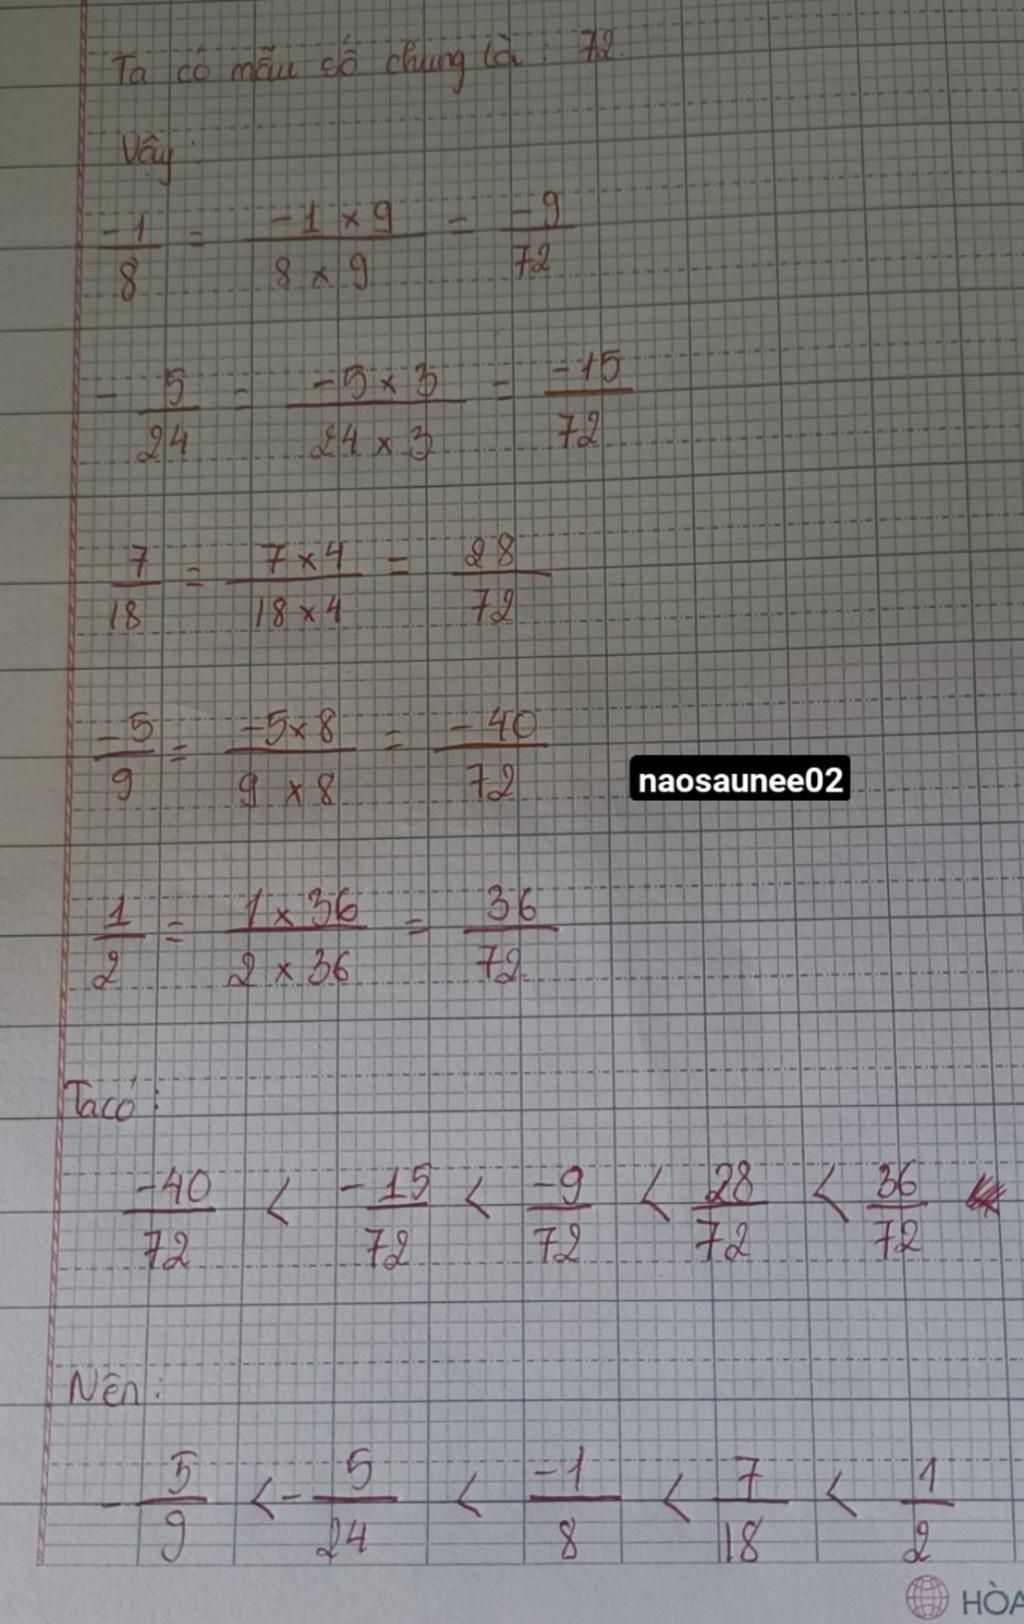 Ta có mẫu số chung là : 72.
Vậy :
-1/8 = -1 × 9/8 × 9 = -9/72
- 5/24 = -5 × 3/24 × 3 = -15/72
7/18 = 7 × 4/18 × 4 = 28/72
-5/9 = -5 × 8/9 × 8 = -40/72
naosaunee02
1/2 = 1 × 36/2 × 36 = 36/72
Ta có :
-40/72 < -15/72 < -9/72 < 28/72 < 36/72
Nên :
- 5/9 < - 5/24 < -1/8 < 7/18 < 1/2
HÒA